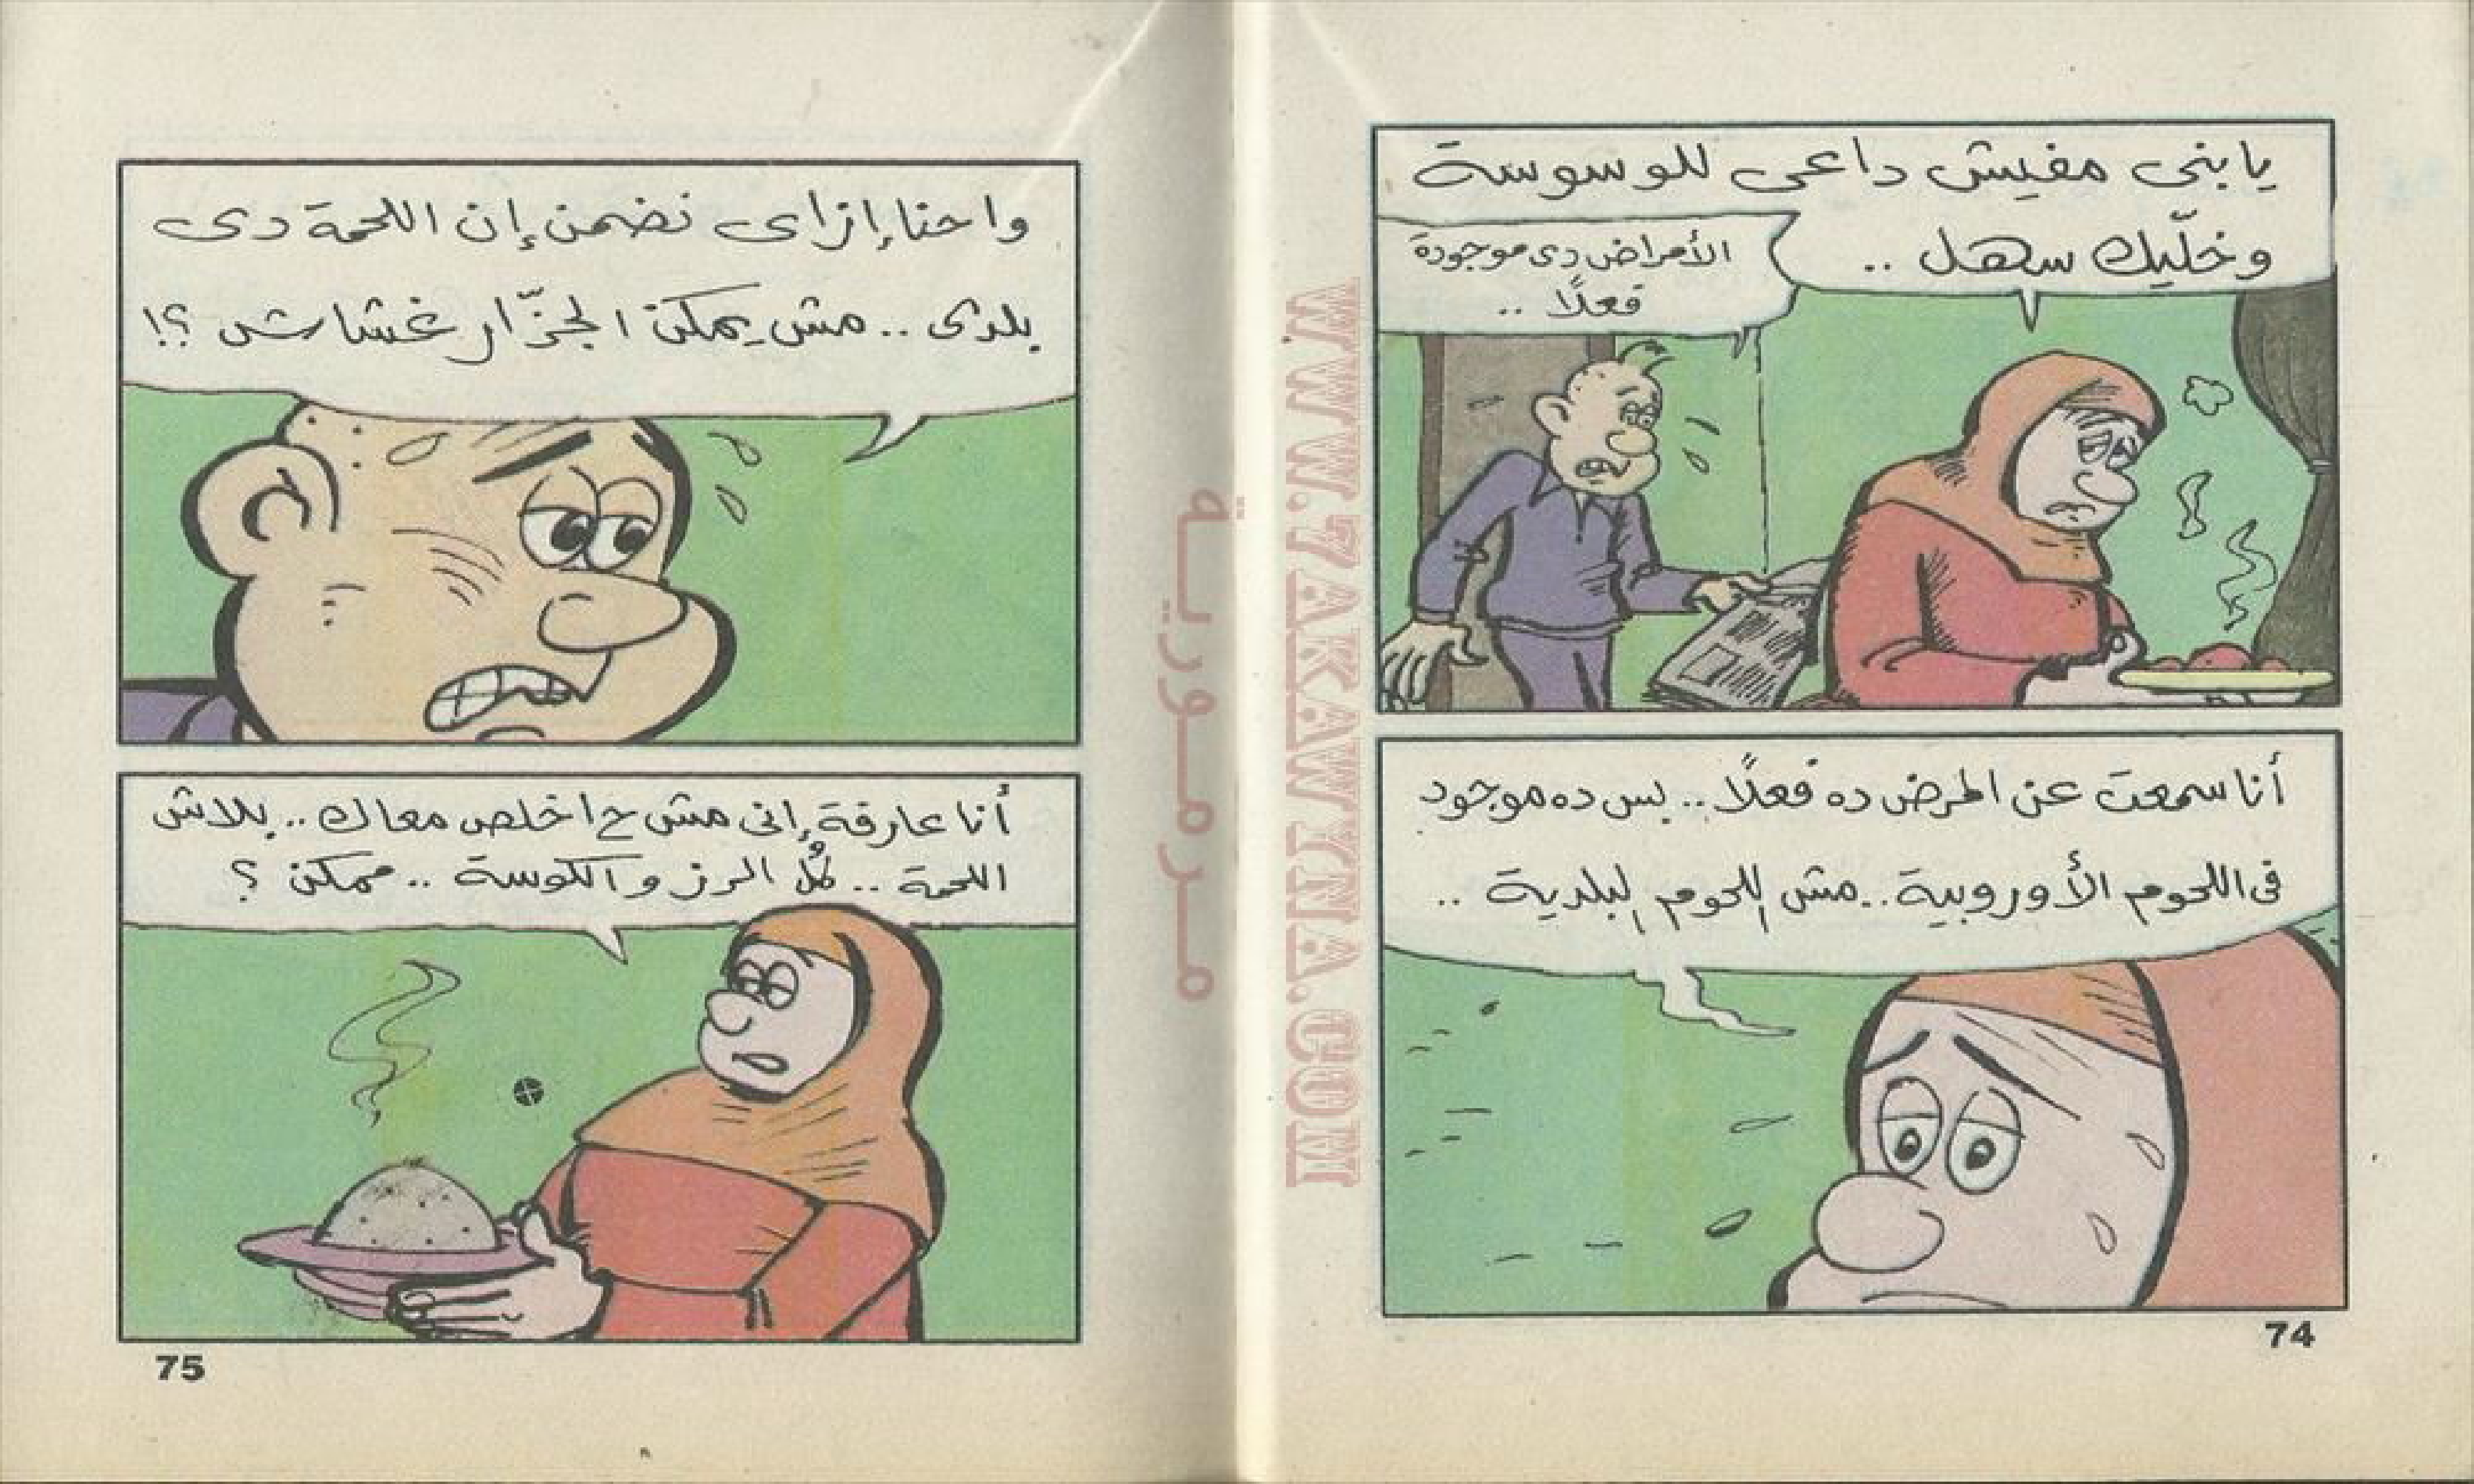 يا بنى مفيش داعى للوسوسة
وخلّيك سهل ..
الأمراض دى موجودة
فعلًا ..
أنا سمعت عن المرض ده فعلًا .. بس ده موجود
فى اللحوم الأوروبية .. مش اللحوم البلدية ..
74
واحنا إزاى نضمن إن اللحمة دى
بلدى .. مش يمكن الجزّار غشاش ؟!
أنا عارفة إنى مش ح اخلص معاك .. بلاش
اللحمة .. كُل الرز والكوسة .. ممكن ؟
75
مرمورية
WWW.7AKAWYNA.COM